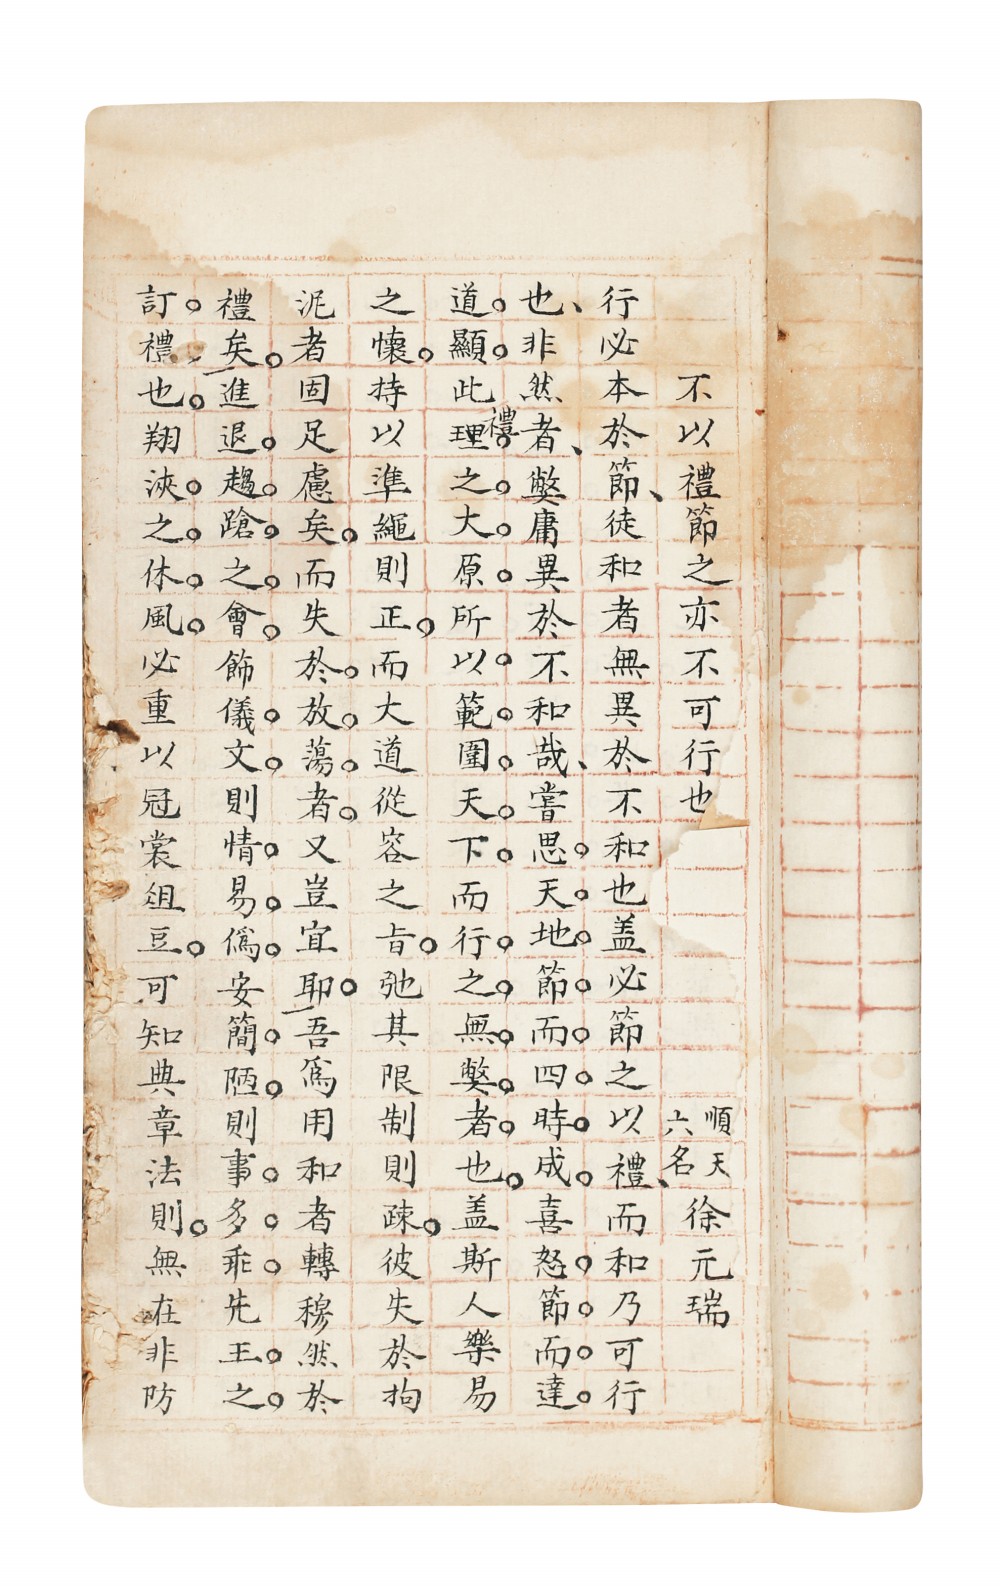 不以禮節之亦不可行也
順天
六名
徐元瑞
行必本於節、徒和者無異於不和也盖必節之以禮、而和乃可行
也、非然者、弊庸異於不和哉、嘗思天地節而四時成喜怒節而達
禮
道顯此理之大原所以範圍天下而行之無弊者也盖斯人樂易
之懷持以準繩則正而大道從容之旨弛其限制則疎彼失於拘
泥者固足慮矣而失於放蕩者又豈宜耶吾爲用和者轉穆然於
禮矣進退趨蹌之會飾儀文則情易僞安簡陋則事多乖先王之
訂禮也翔浹之休風必重以冠裳俎豆可知典章法則無在非防